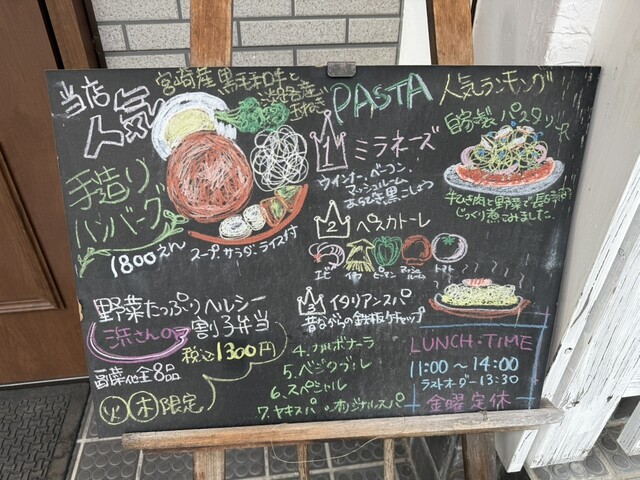 当店
人気
宮崎産黒毛和牛と
淡路産
玉ねぎ
手造り
ハンバーグ
1800えん
スープ、サラダ、ライス付
野菜たっぷりヘルシー
浜さんの割子弁当
税込1300円
副菜他全8品
火木限定
PASTA 人気ランキング
1 ミラネーズ
ウインナー、ベーコン、
マッシュルーム
あらびき黒こしょう
2 ペスカトーレ
エビ イカ ピーマン マッシュルーム トマト
3 イタリアンスパ
昔ながらの鉄板ケチャップ
4. カルボナーラ
5. ベジタブル
6. スペシャル
7. ヤキスパ オリジナルスパ
自家製 パスタソース
牛ひき肉と野菜で長時間
じっくり煮こみました。
LUNCH・TIME
11:00〜14:00
ラストオーダー13:30
金曜定休